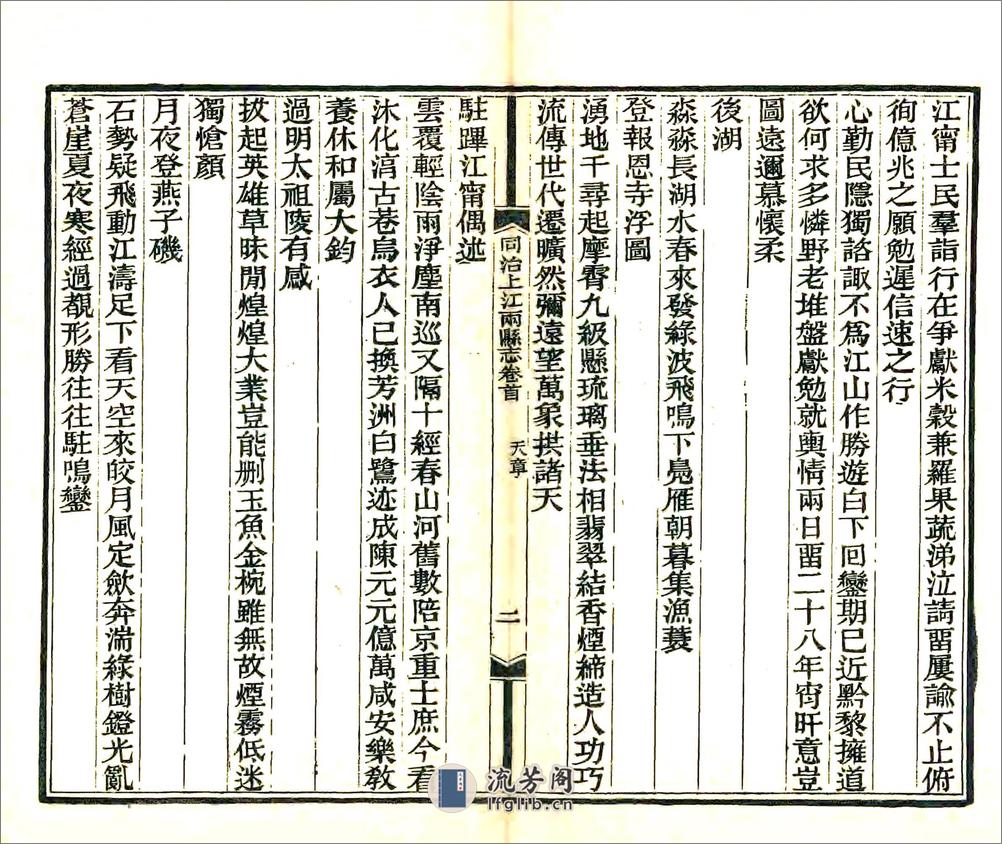 江甯士民羣詣行在爭獻米穀兼羅果蔬涕泣請畱屢諭不止俯
徇億兆之願勉遲信速之行
心勤民隱獨諮諏不爲江山作勝遊白下回鑾期已近黔黎擁道
欲何求多憐野老堆盤獻勉就輿情兩日畱二十八年宵旰意豈
圖遠邇慕懷柔
後湖
淼淼長湖水春來發綠波飛鳴下鳧雁朝暮集漁蓑
登報恩寺浮圖
湧地千尋起摩霄九級懸琉璃垂法相翡翠結香煙締造人功巧
流傳世代遷曠然彌遠望萬象拱諸天
同治上江兩縣志卷首
天章
二
駐蹕江甯偶述
雲覆輕陰雨淨塵南巡又隔十經春山河舊數陪京重士庶今看
沐化湻古巷烏衣人已換芳洲白鷺迹成陳元元億萬咸安樂敎
養休和屬大鈞
過明太祖陵有感
拔起英雄草昧開煌煌大業豈能刪玉魚金椀雖無故煙霧低迷
獨愴顏
月夜登燕子磯
石勢疑飛動江濤足下看天空來皎月風定歛奔湍綠樹鐙光亂
蒼崖夏夜寒經過覩形勝往往駐鳴鑾
流芳阁
lfglib.cn